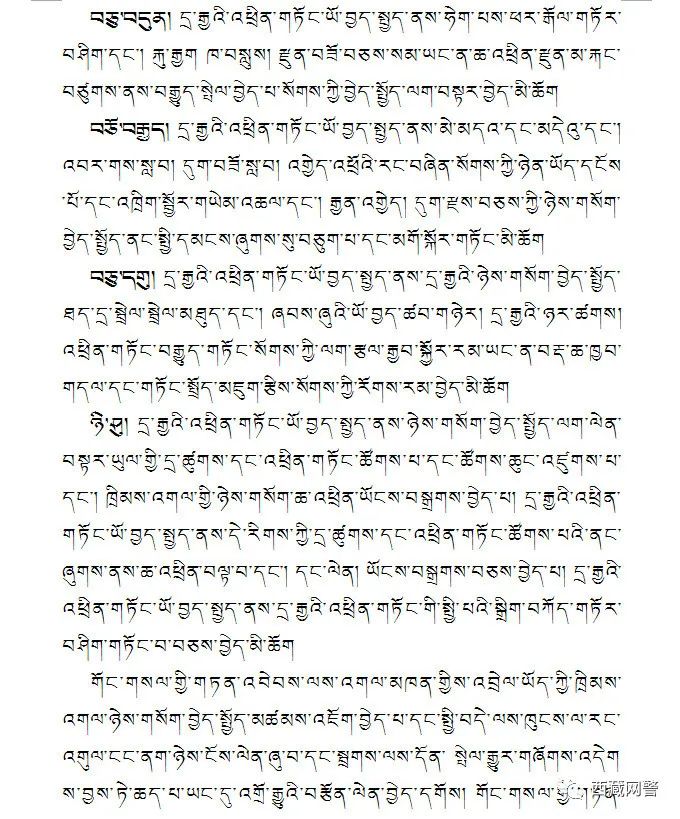 བཅུ་བདུན། དྲ་རྒྱའི་འཕྲིན་གཏོང་ཡོ་བྱད་སྤྱད་ནས་ཧེག་པས་ཕར་རྒོལ་གཏོར་
བཤིག་དང་། ཀུ་རྒྱག ཁ་བསླུས། རྫུན་བཟོ་བཅས་སམ་ཡང་ན་ཆ་འཕྲིན་རྫུན་མ་རྐང་
བཙུགས་ནས་བརྒྱུད་སྤེལ་བྱེད་པ་སོགས་ཀྱི་བྱེད་སྤྱོད་ལག་བསྟར་བྱེད་མི་ཆོག
བཅོ་བརྒྱད། དྲ་རྒྱའི་འཕྲིན་གཏོང་ཡོ་བྱད་སྤྱད་ནས་མེ་མདའ་དང་མདེའུ་དང་།
འབར་གས་སླ་བ། དུག་བཟོ་སླ་བ། འགྱེད་འཕྲོའི་རང་བཞིན་སོགས་ཀྱི་ཉེན་ཡོད་དངོས་
པོ་དང་འཁྲིག་སྦྱོར་གཡེམ་འཆལ་དང་། རྒྱན་འགྱེད། དུག་རྫས་བཅས་ཀྱི་ཉེས་གསོག་
བྱེད་སྤྱོད་ནང་སྤྱི་དམངས་ཞུགས་སུ་བཅུག་པ་དང་མགོ་སྐོར་གཏོང་མི་ཆོག
བཅུ་དགུ། དྲ་རྒྱའི་འཕྲིན་གཏོང་ཡོ་བྱད་སྤྱད་ནས་དྲ་རྒྱའི་ཉེས་གསོག་བྱེད་སྤྱོད་
ཐད་དྲ་སྦྲེལ་སྦྲེལ་མཐུད་དང་། ཞབས་ཞུའི་ཡོ་བྱད་ཚབ་གཉེར། དྲ་རྒྱའི་ཉར་ཚགས།
འཕྲིན་གཏོང་བརྒྱུད་གཏོང་སོགས་ཀྱི་ལག་རྩལ་རྒྱབ་སྐྱོར་རམ་ཡང་ན་བརྡ་ཆ་ཁྱབ་
གདལ་དང་གཏོང་སྤྲོད་མཇུག་རྩིས་སོགས་ཀྱི་རོགས་རམ་བྱེད་མི་ཆོག
ཉི་ཤུ། དྲ་རྒྱའི་འཕྲིན་གཏོང་ཡོ་བྱད་སྤྱད་ནས་ཉེས་གསོག་བྱེད་སྤྱོད་ལག་ལེན་
བསྟར་ཡུལ་གྱི་དྲ་ཚུགས་དང་འཕྲིན་གཏོང་ཚོགས་པ་དང་ཚོགས་ཆུང་འཛུགས་པ་
དང་། ཁྲིམས་འགལ་གྱི་ཉེས་གསོག་ཆ་འཕྲིན་ཡོངས་བསྒྲགས་བྱེད་པ། དྲ་རྒྱའི་འཕྲིན་
གཏོང་ཡོ་བྱད་སྤྱད་ནས་དེ་རིགས་ཀྱི་དྲ་ཚུགས་དང་འཕྲིན་གཏོང་ཚོགས་པའི་ནང་
ཞུགས་ནས་ཆ་འཕྲིན་བལྟ་བ་དང་། དང་ལེན། ཡོངས་བསྒྲགས་བཅས་བྱེད་པ། དྲ་རྒྱའི་
འཕྲིན་གཏོང་ཡོ་བྱད་སྤྱད་ནས་དྲ་རྒྱའི་འཕྲིན་གཏོང་གི་སྤྱི་པའི་སྒྲིག་བཀོད་གཏོར་
བཤིག་གཏོང་བ་བཅས་བྱེད་མི་ཆོག
གོང་གསལ་གྱི་གཏན་འབེབས་ལས་འགལ་མཁན་གྱིས་འབྲེལ་ཡོད་ཀྱི་ཁྲིམས་
འགལ་ཉེས་གསོག་བྱེད་སྤྱོད་མཚམས་འཇོག་བྱེད་པ་དང་སྤྱི་བདེ་ལས་ཁུངས་ལ་རང་
འགུལ་ངང་ནག་ཉེས་ངོས་ལེན་ཞུ་བ་དང་སྦྲགས་ལས་དོན་ སྤེལ་རྒྱུར་གཞོགས་འདེག
ས་བྱས་ཏེ་ཆད་པ་ཡང་དུ་འགྲོ་རྒྱུའི་བརྩོན་ལེན་བྱེད་དགོས། གོང་གསལ་གྱི་
西藏网警